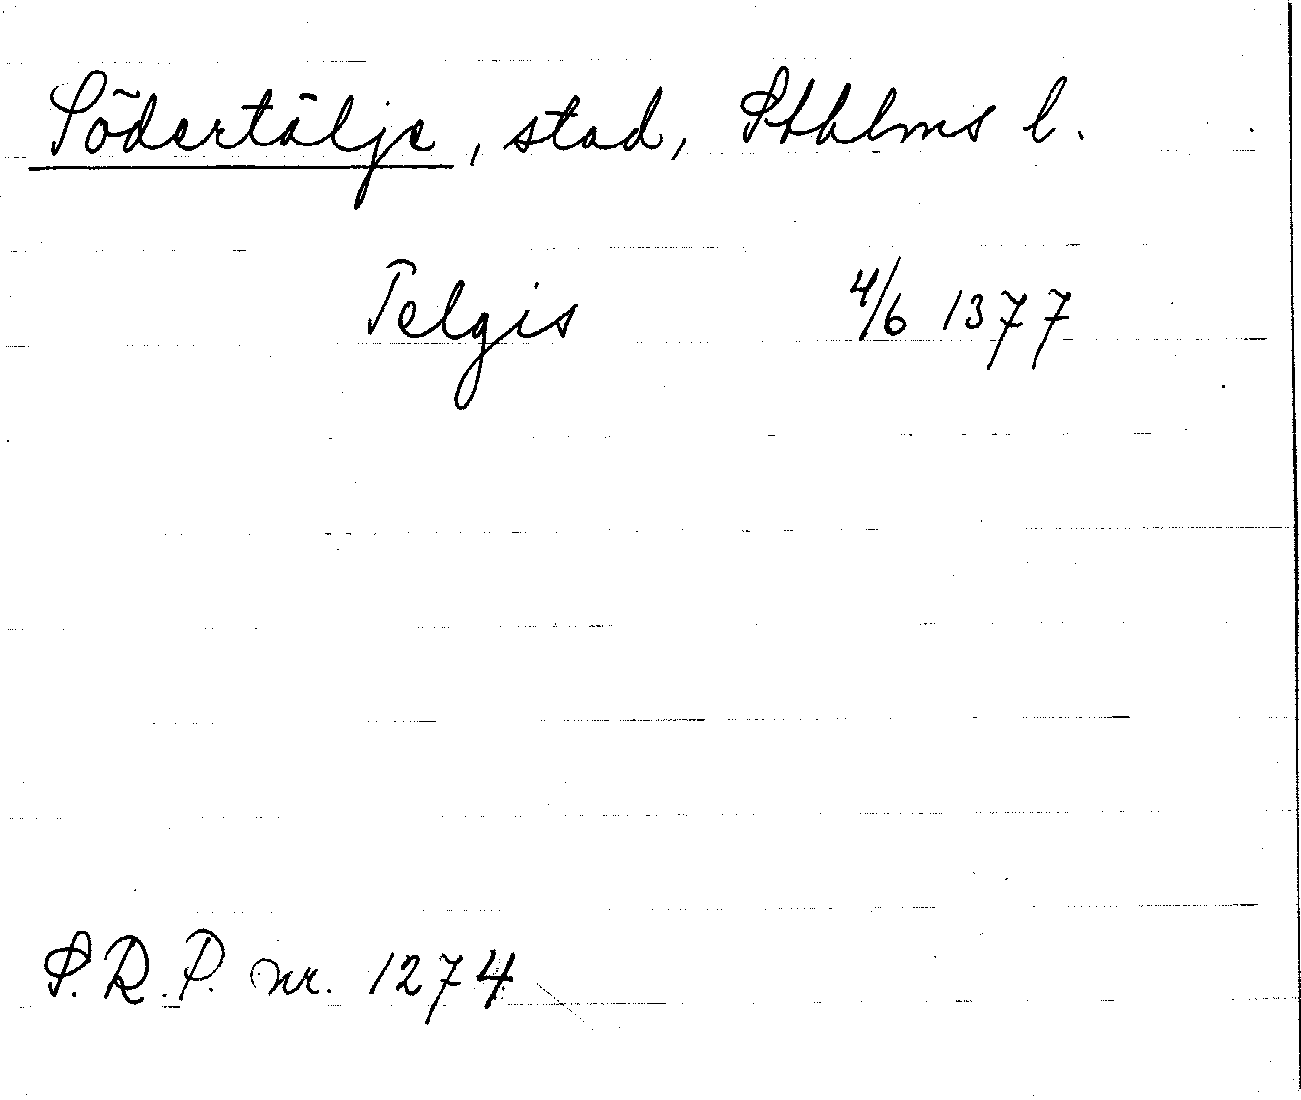 Södertälje, stad, Sthlms l.
Telgis 4/6 1377
S.R.P. nr. 1274